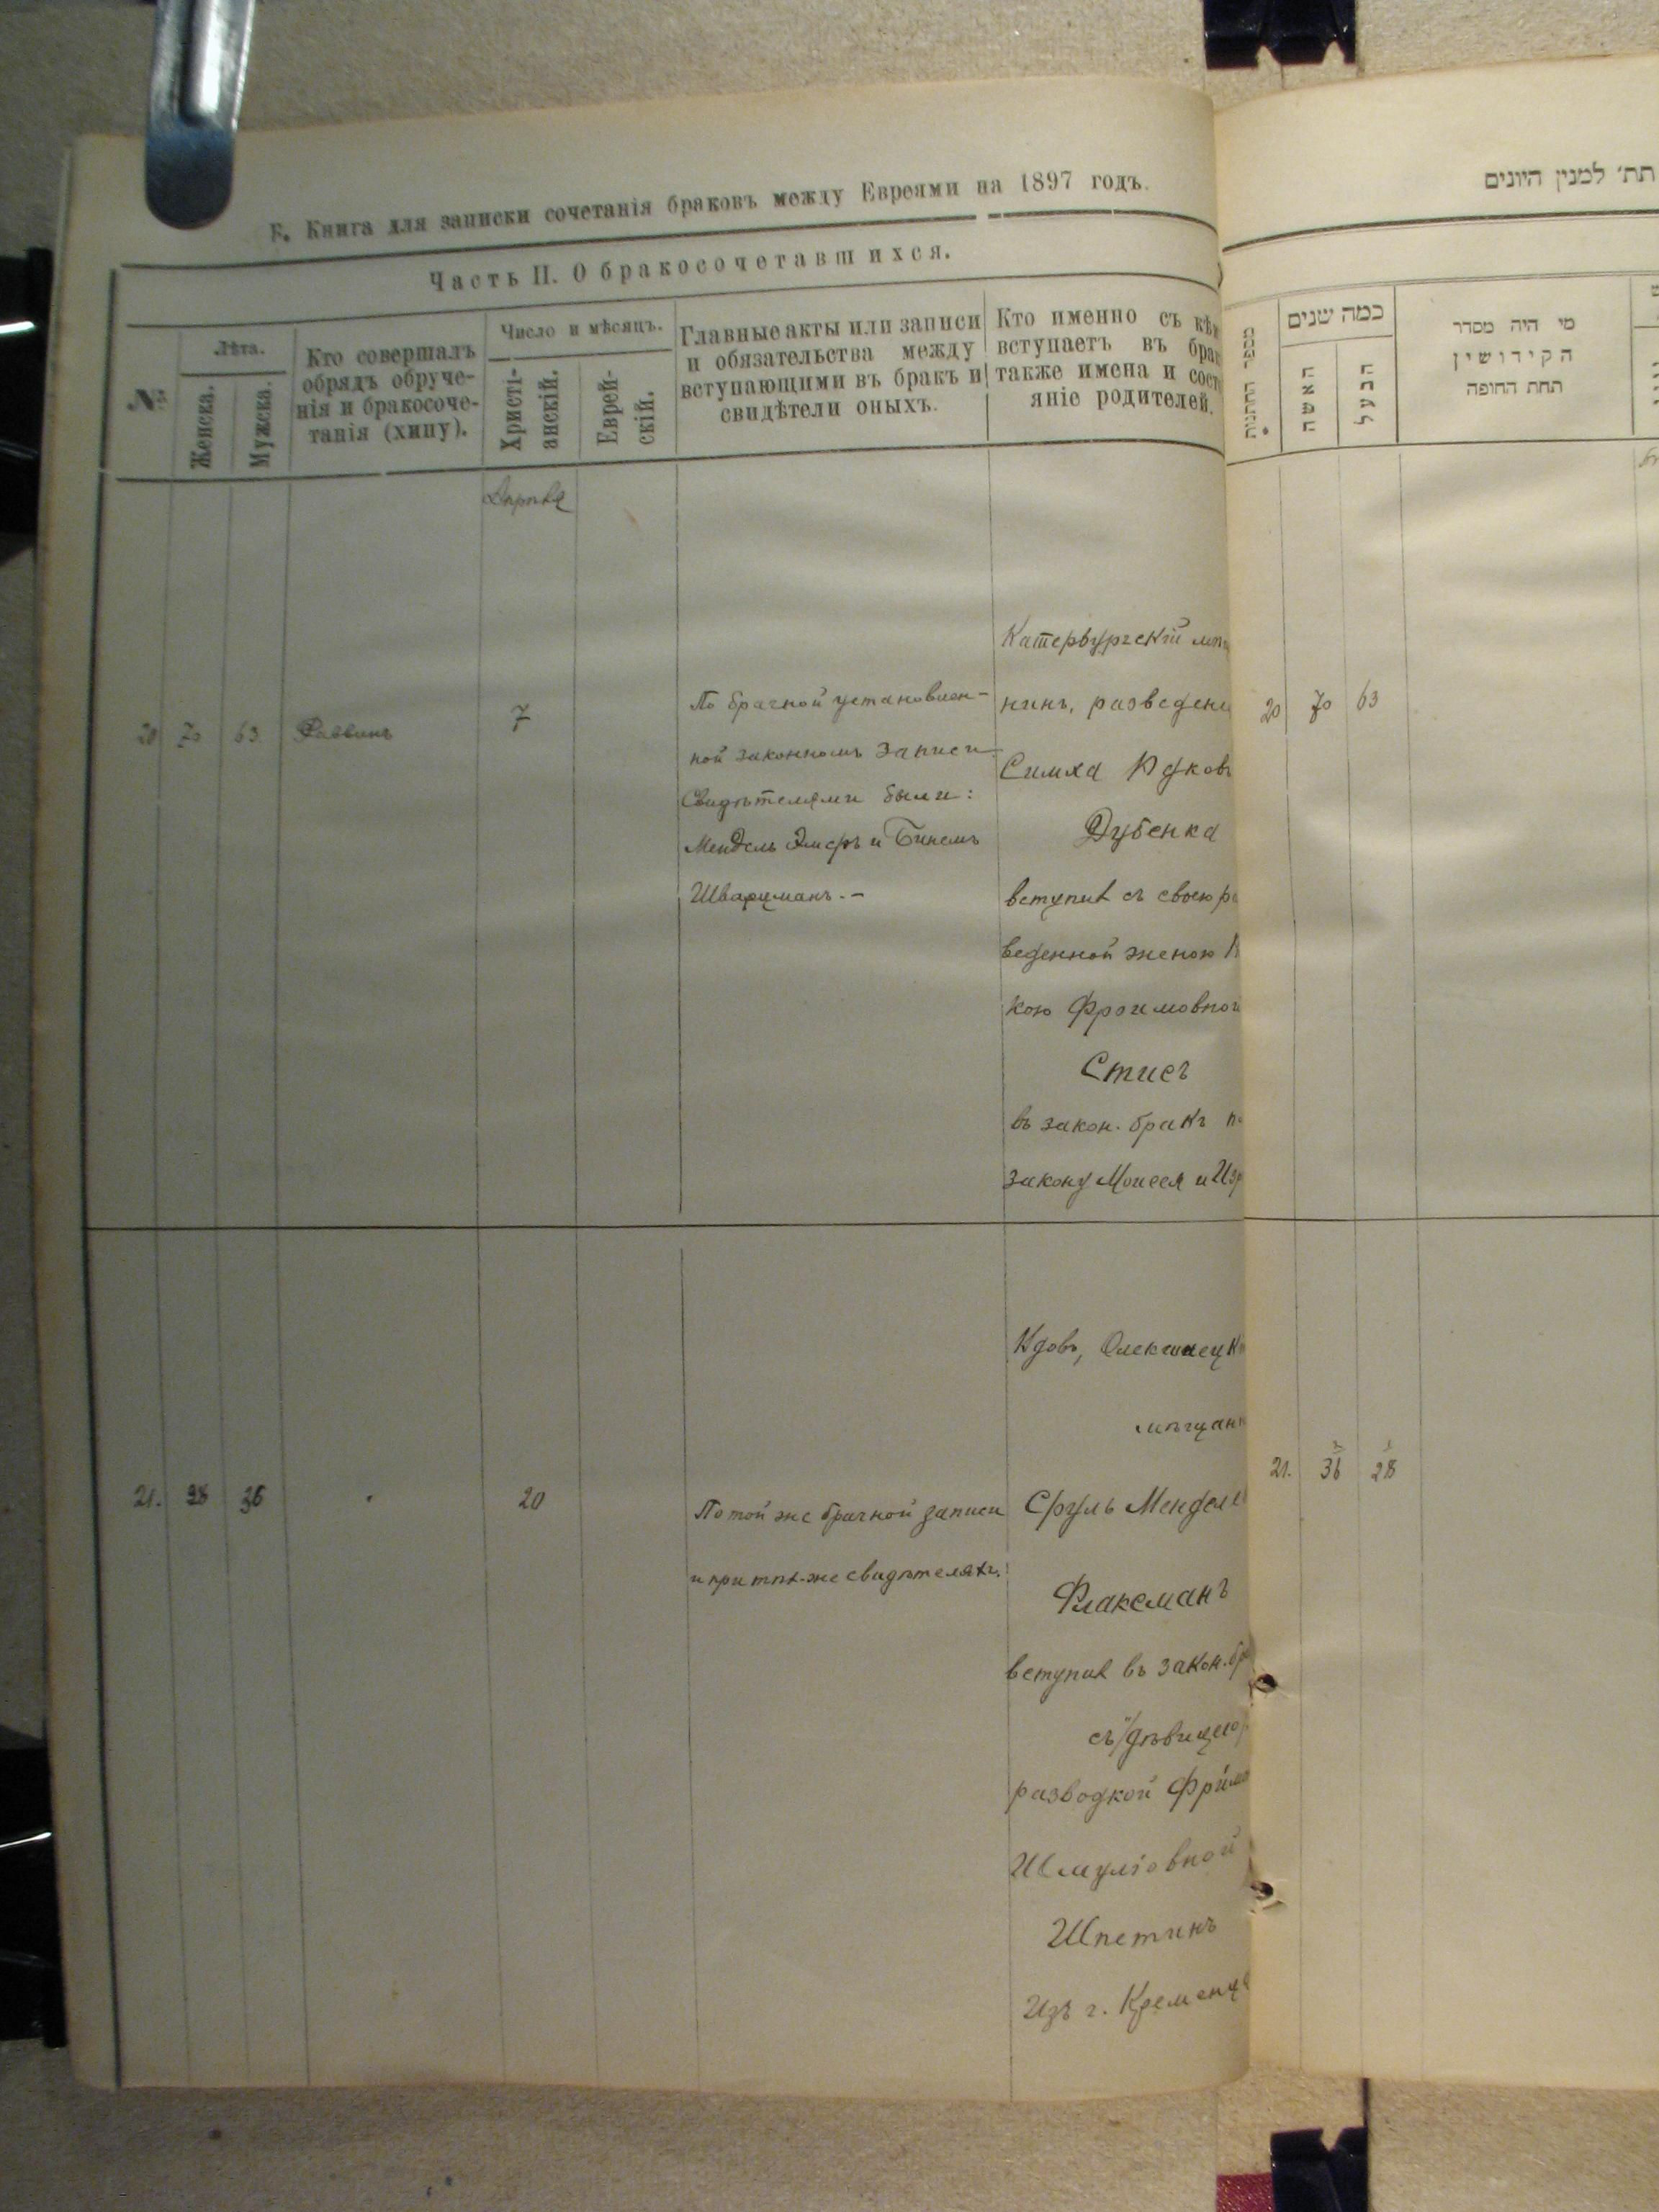 Б. Книга для записки сочетанія браковъ между Евреями на 1897 годъ.
Часть II. О бракосочетавшихся.
№
Лѣта.
Женска.
Мужска.
Кто совершалъ
обрядъ обруче-
нія и бракосоче-
танія (хипу).
Число и мѣсяцъ.
Христі-
анскій.
Еврей-
скій.
Главные акты или записи
и обязательства между
вступающими въ бракъ и
свидѣтели оныхъ.
Кто именно съ кѣм
вступаетъ въ брак
также имена и сост
яніе родителей.
Апрѣля
20 70 63 Раввинъ 7
По брачной установлен-
ной закономъ записи.
Свидѣтелями были:
Мендель Элмеръ и Бинемъ
Шварцманъ.-
Катербургскій мѣщ
нинъ, разведен
Симха
Дубенка
вступил съ своею ра
веденной женою
кою Фроимовной
Стисъ
въ закон. бракъ по
закону Моисея и Изр
21. 28 36 20
По той же брачной записи
и при тѣх-же свидѣтеляхъ.
Вдовъ,
мѣщанин
Сруль Менделев
Флаксманъ
вступил въ закон. бра
съ дѣвицею
разводкой Фрима
Шмуліовной
Шпетинъ
изъ г. Кременца
תת׳ למנין היונים
מספר החתונות
כמה שנים
האשה
הבעל
מי היה מסדר
הקידושין
תחת החופה
20 70 63
21. 36 28